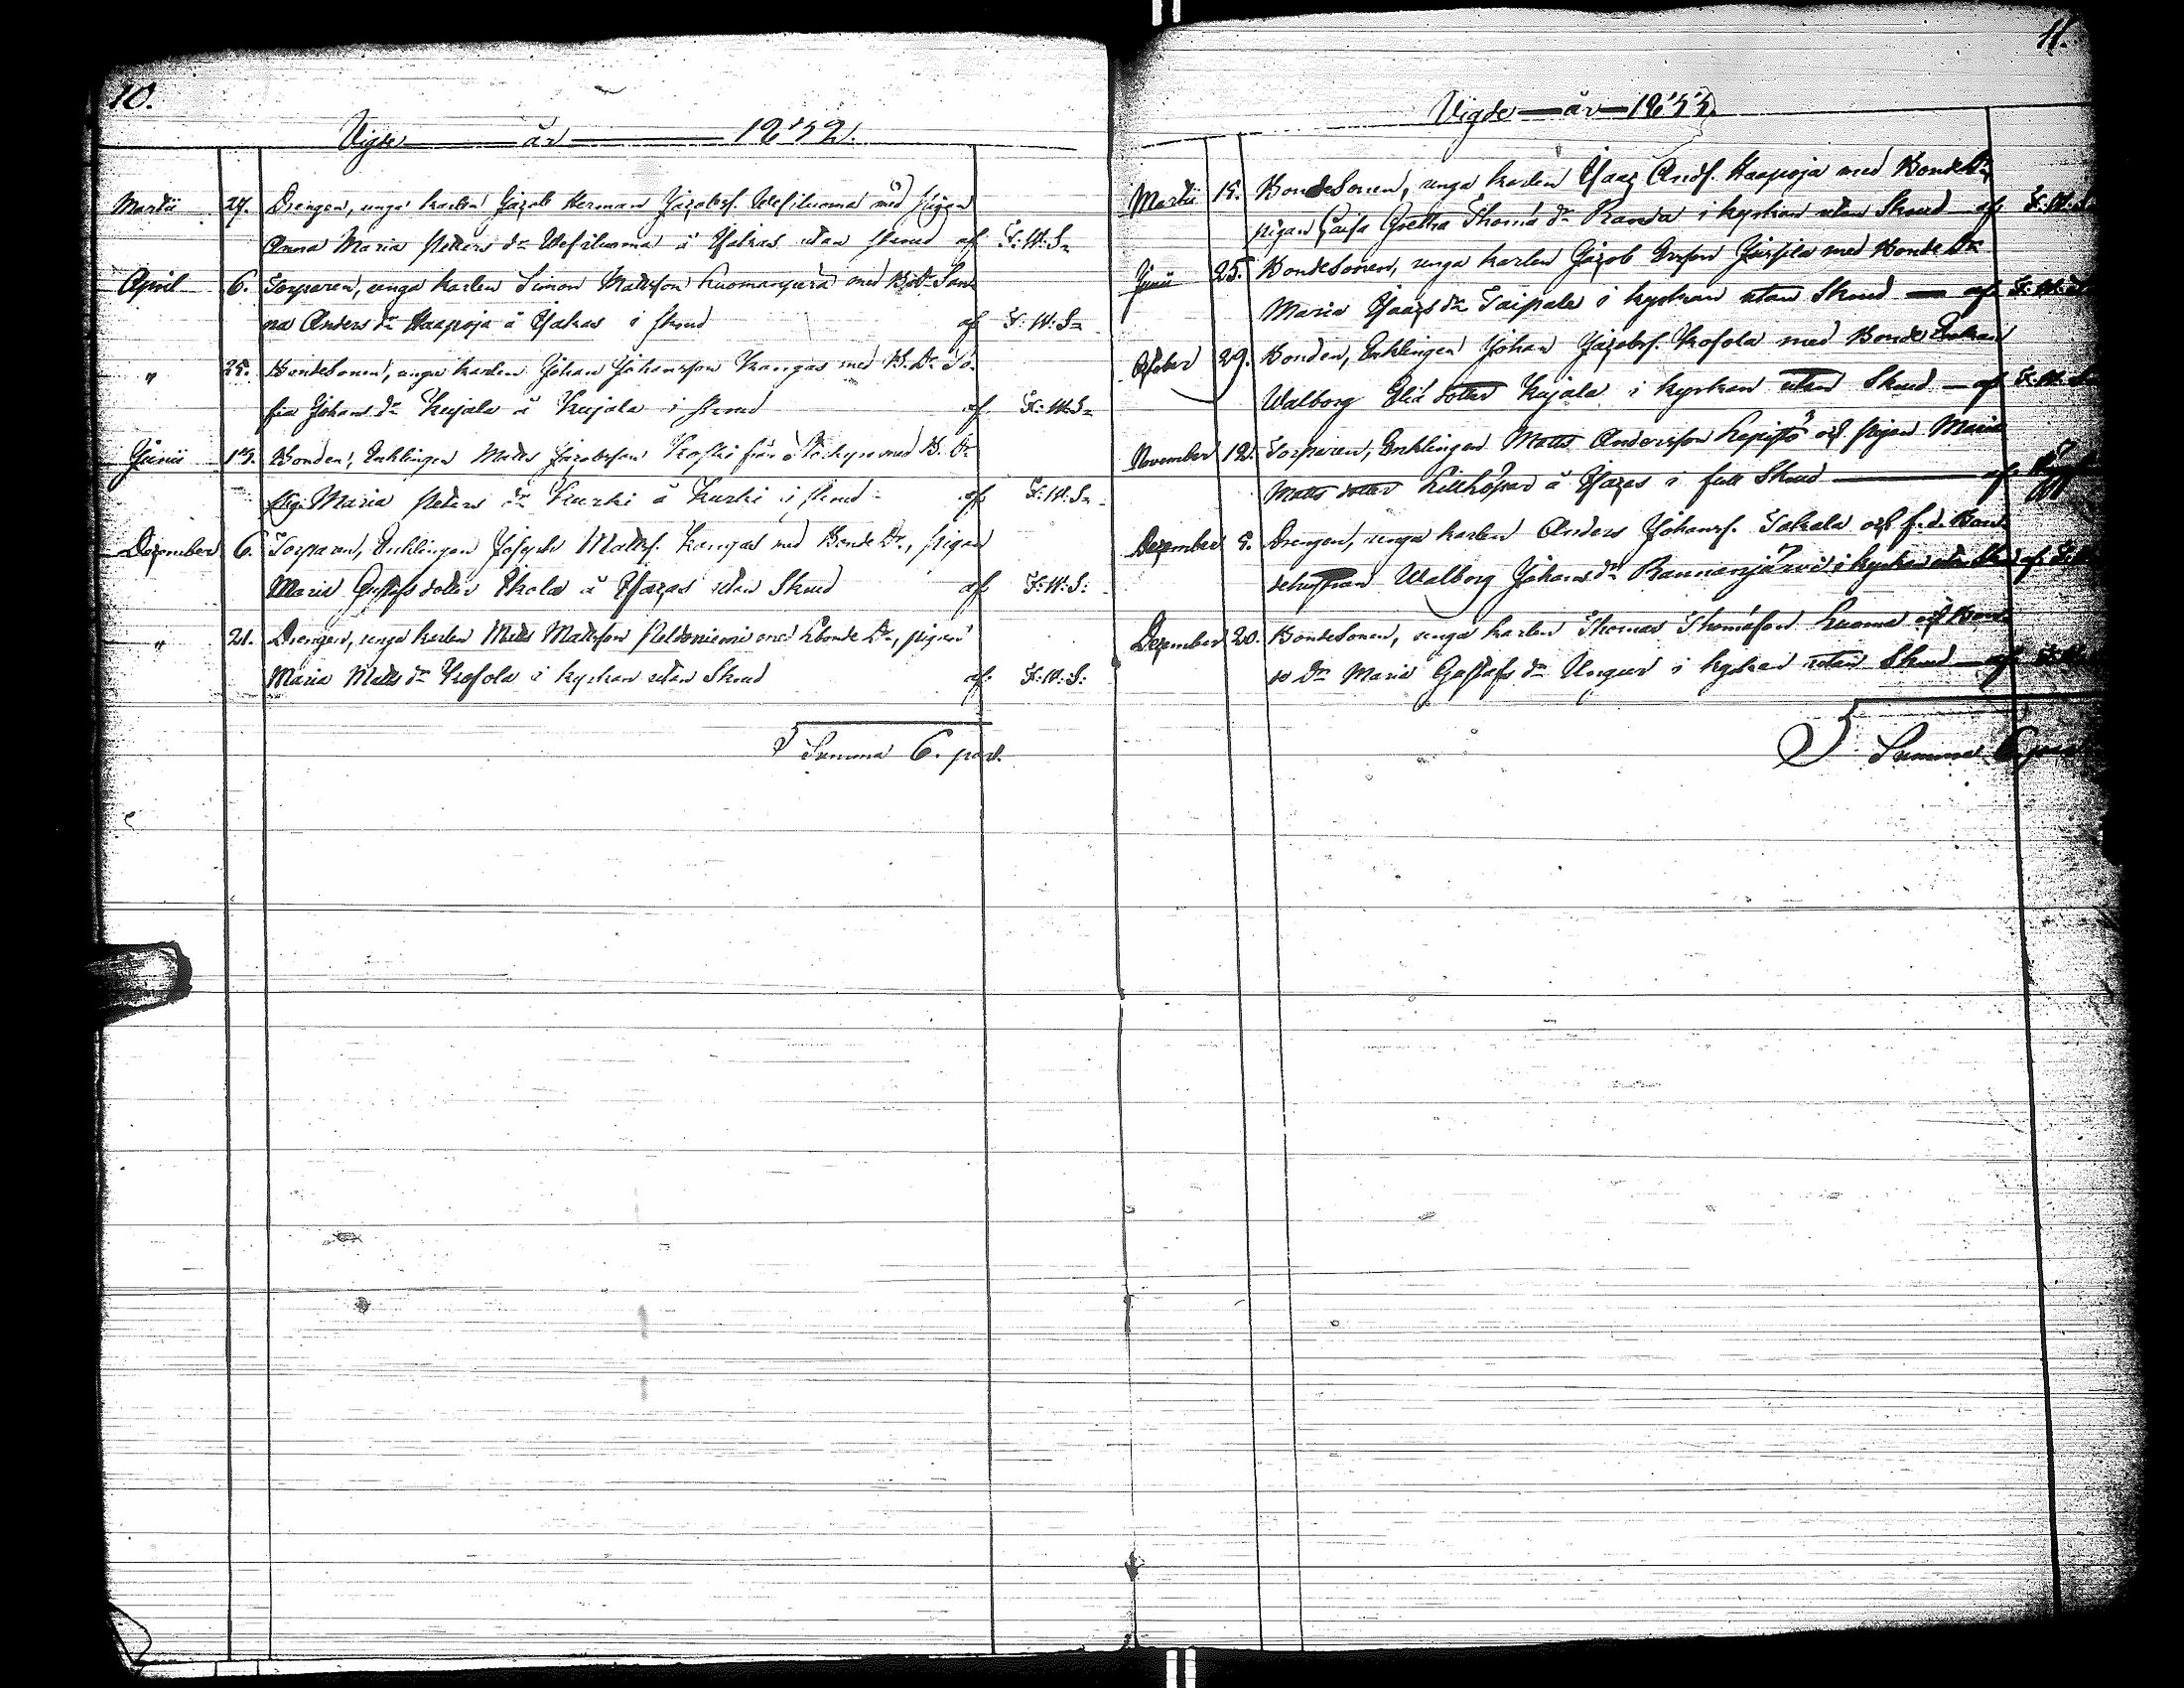 10.
Vigde år 1852.
Martii 27. Drengen, unga karlen Jacob Herman Jacobsf. med Pigan
Anna Maria Peters dr å Ylakas utan skrud af F:W:S:
April 6. Torparen, unga karlen Simon Mattsson Luomanperä med B:dr San-
na Anders dr Haapoja å Ylakas i skrud af F:W:S:
" 25. Bondesonen, unga karlen Johan Johansson Kangas med B.Dr So-
fia Johans dr Kujala å Kujala i skrud af F:W:S:
Junii Bonden, Enklingen Matts Jacobsson Koski från med B.Dr
Maria Peters dr Kurki å Kurki i skrud af F:W:S:
December 6. Torparen, Enklingen Joseph Mattsf. Kangas med Bonde Dr, pigan
Maria Gustafs dotter å utan Skrud af F:W:S:
" 21. Drengen, unga karlen Matts Mattsson Peldoniemi med Bonde Dr, pigan
Maria Matts dr Kosola i kyrkan utan Skrud af F:W:S:
Summa 6. par.
11.
Vigde år 1853.
Martii 15. Bondesonen, unga karlen Isaac Andsf. Haapoja med Bonde Dr,
pigan Caisa Gretha Thomæ dr Randa i kyrkan utan Skrud af F:W:S
Junii 25. Bondesonen, unga karlen Jacob Jussila med Bonde Dr
Maria Isaacs dr Taipale i kyrkan utan Skrud af F:W:S
October 29. Bonden, Enklingen Johan Jacobsf. Kosola med Bonde Enkan
Walborg Eliæ dotter Kujala i kyrkan utan Skrud af F:W:S
November 12. Torparen, Enklingen Matts Andersson Lepistö och pigan Maria
Matts dotter å i full Skrud af
December 5. Drengen, unga karlen Anders Johansf. Takala och f.d. Bon-
dehustran Walborg Johans dr Rannanjärvi i kyrkan utan Skrud af
December 20. Bondesonen, unga karlen Thomas Thomasson Luoma och Bon-
de Dr Maria Gustafs dr Ungur i kyrkan utan Skrud af
Summa 6 par